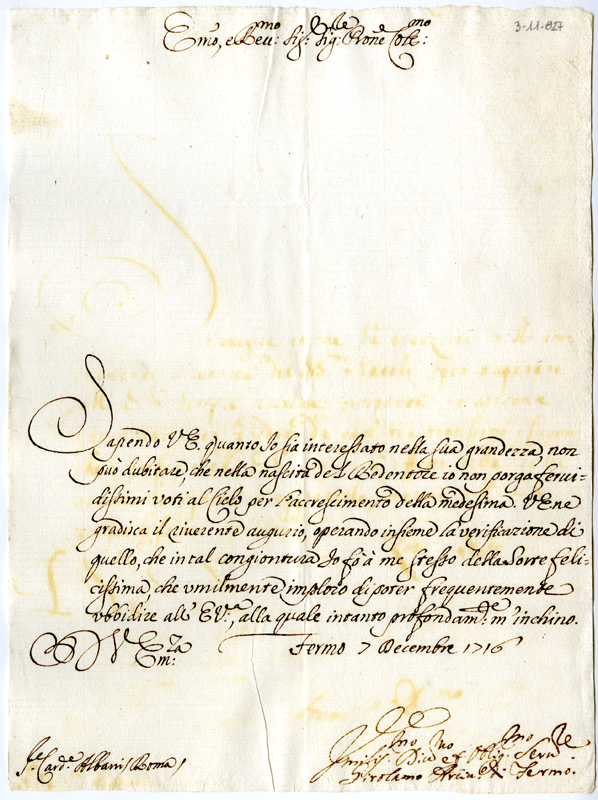 3-11-827
Em̃o, e Reu:mo Sig:r Sig:r Prõne Col:mo
Sapendo V.E. quanto Io sia interessato nella sua grandezza, non
può dubitare, che nella nascita del Redentore io non porga ferui-
dissimi voti al Cielo per l'accrescimento della medesima. V.E. ne
gradisca il riverente augurio, operando insieme la verificazione di
quello, che in tal congiontura Io fò à me stesso della Sorte feli-
cissima, che vmilmente imploro di poter frequentemente
vbbidire all' E.V.a, alla quale intanto profondam:te m'inchino.
V. Em:za Fermo 7 Decembre 1716
S.e Card.e Albani / Roma /
Vmiliss:mo Diu:mo et Oblig:mo Seru:re
Girolamo Arciu: di Fermo.